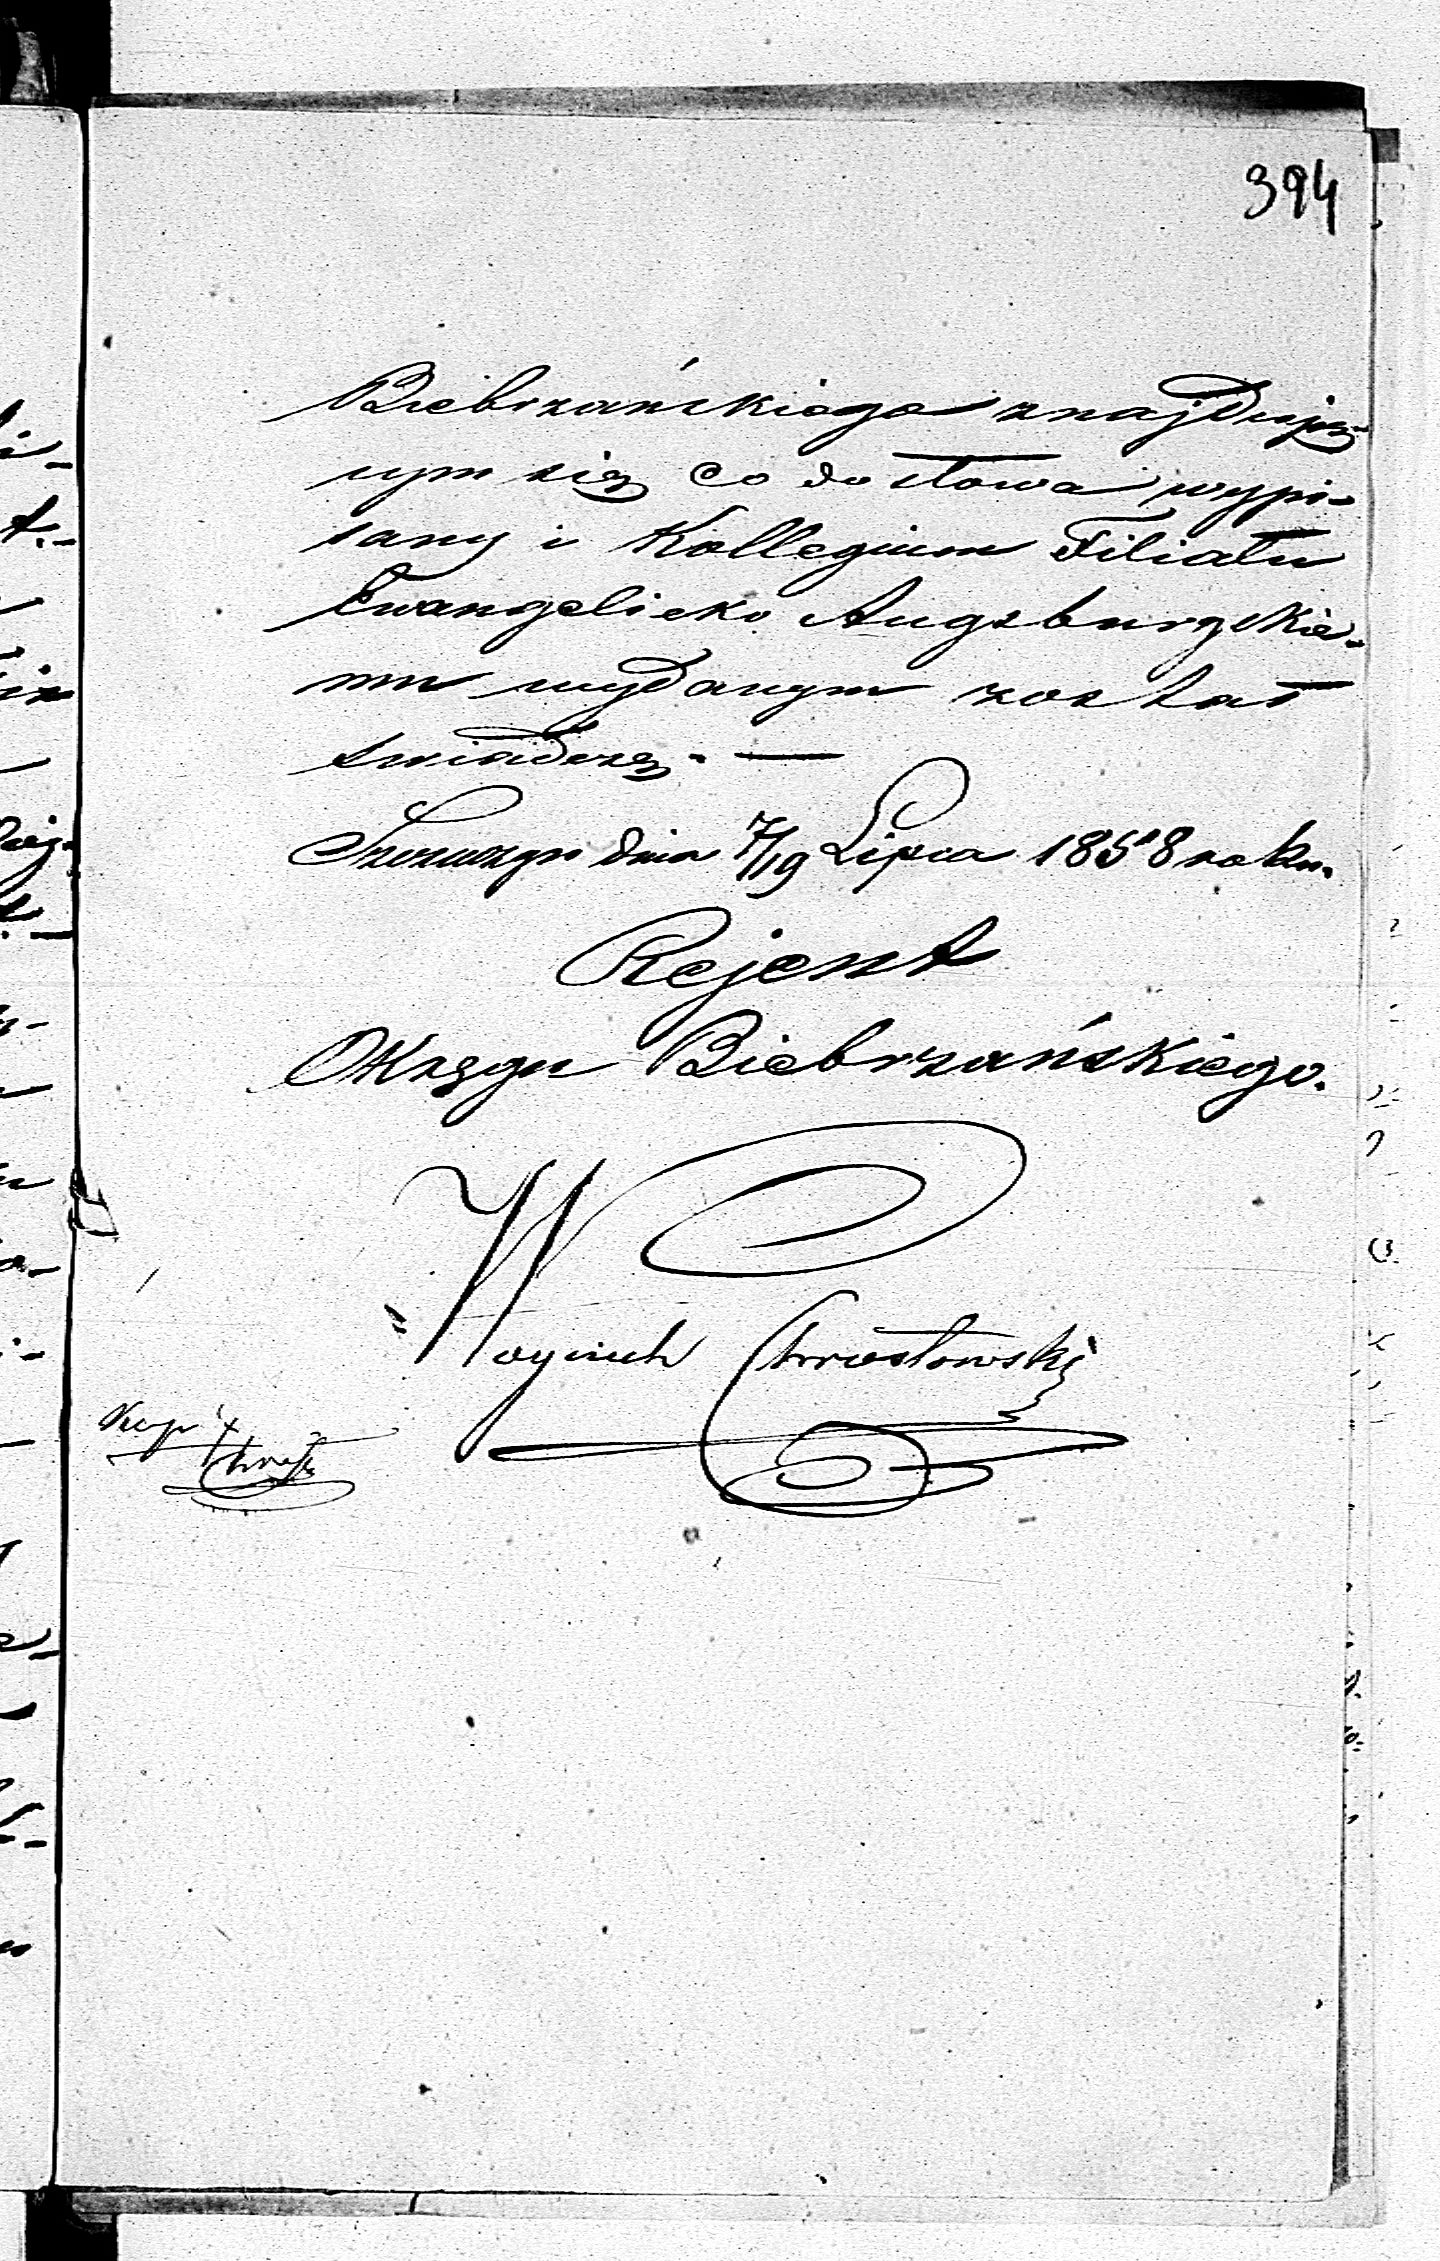 394
Biebrzańskiego znajdują-
cym się co do słowa wypi-
sany i Kollegium Filiału
Ewangelicko Augsburgskie-
mu wydanym został
swiadczę. —
Szczuczyn dnia 7/19 Lipca 1858 roku.
Rejent
Okręgu Biebrzańskiego.
Woyciech Chrostowski